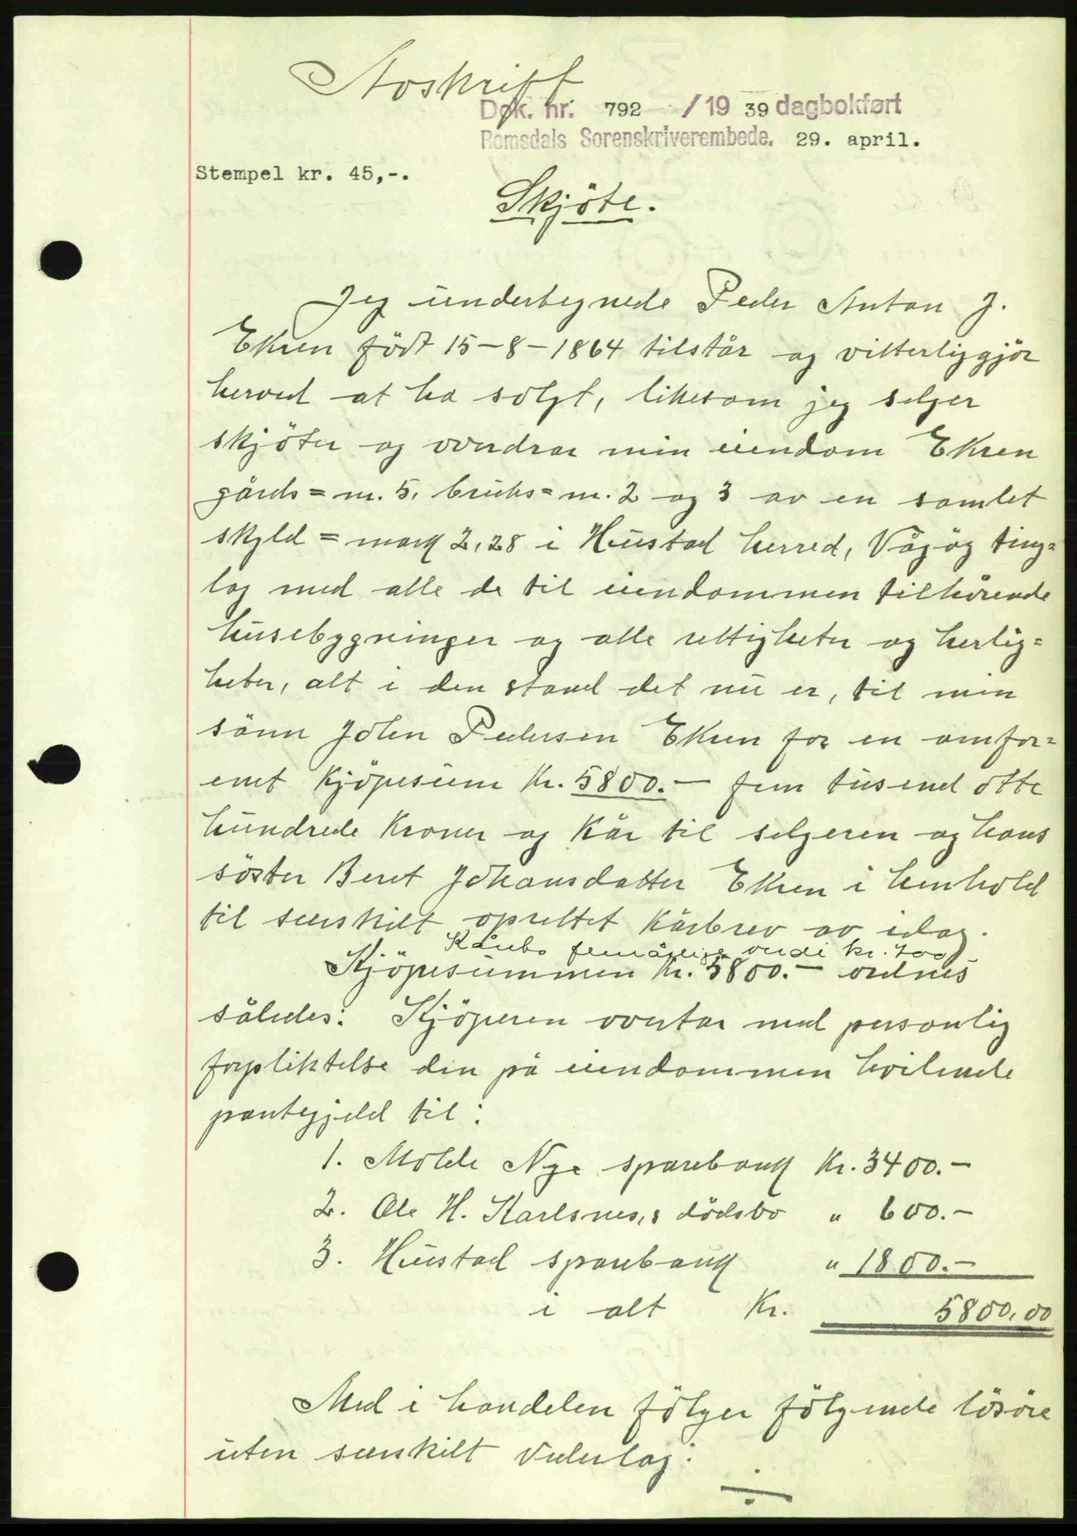 Avskrift
Dok. nr. 792 / 19 39 dagbokført
Romsdals Sorenskriverembede. 29. april.
Stempel kr. 45,-.
Skjöte.
Jeg undertegnede Peder Anton J.
Ekren födt 15-8-1864 tilstår og vitterliggjör
herved at ha solgt, likesom jeg selger
skjöter og overdrar min eiendom Ekren
gårds= nr. 5, bruks= nr. 2 og 3 av en samlet
skyld = mark 2,28 i Hustad herred, Vågöy ting=
lag med alle de til eiendommen tilhörende
husebygninger og alle rettigheter og herlig=
heter, alt i den stand det nu er, til min
sönn John Pedersen Ekren for en omfor=
enet kjöpesum kr. 5800.- fem tusend otte
hundrede kroner og kår til selgeren og hans
söster Beret Johansdatter Ekren i henhold
til særskilt oprettet kårbrev av idag.
Kårets femårige verdi kr. 700
Kjöpesummen kr. 5800.- ordnes
således: Kjöperen overtar med personlig
forpliktelse den på eiendommen hvilende
pantegjeld til:
1. Molde Nye sparebank Kr. 3400.-
2. Ole H. Karlsnes,s dödsbo " 600.-
3. Hustad sparebank " 1800.-
i alt Kr. 5800,00
Med i handelen fölger fölgende lösöre
uten særskilt vederlag:
÷